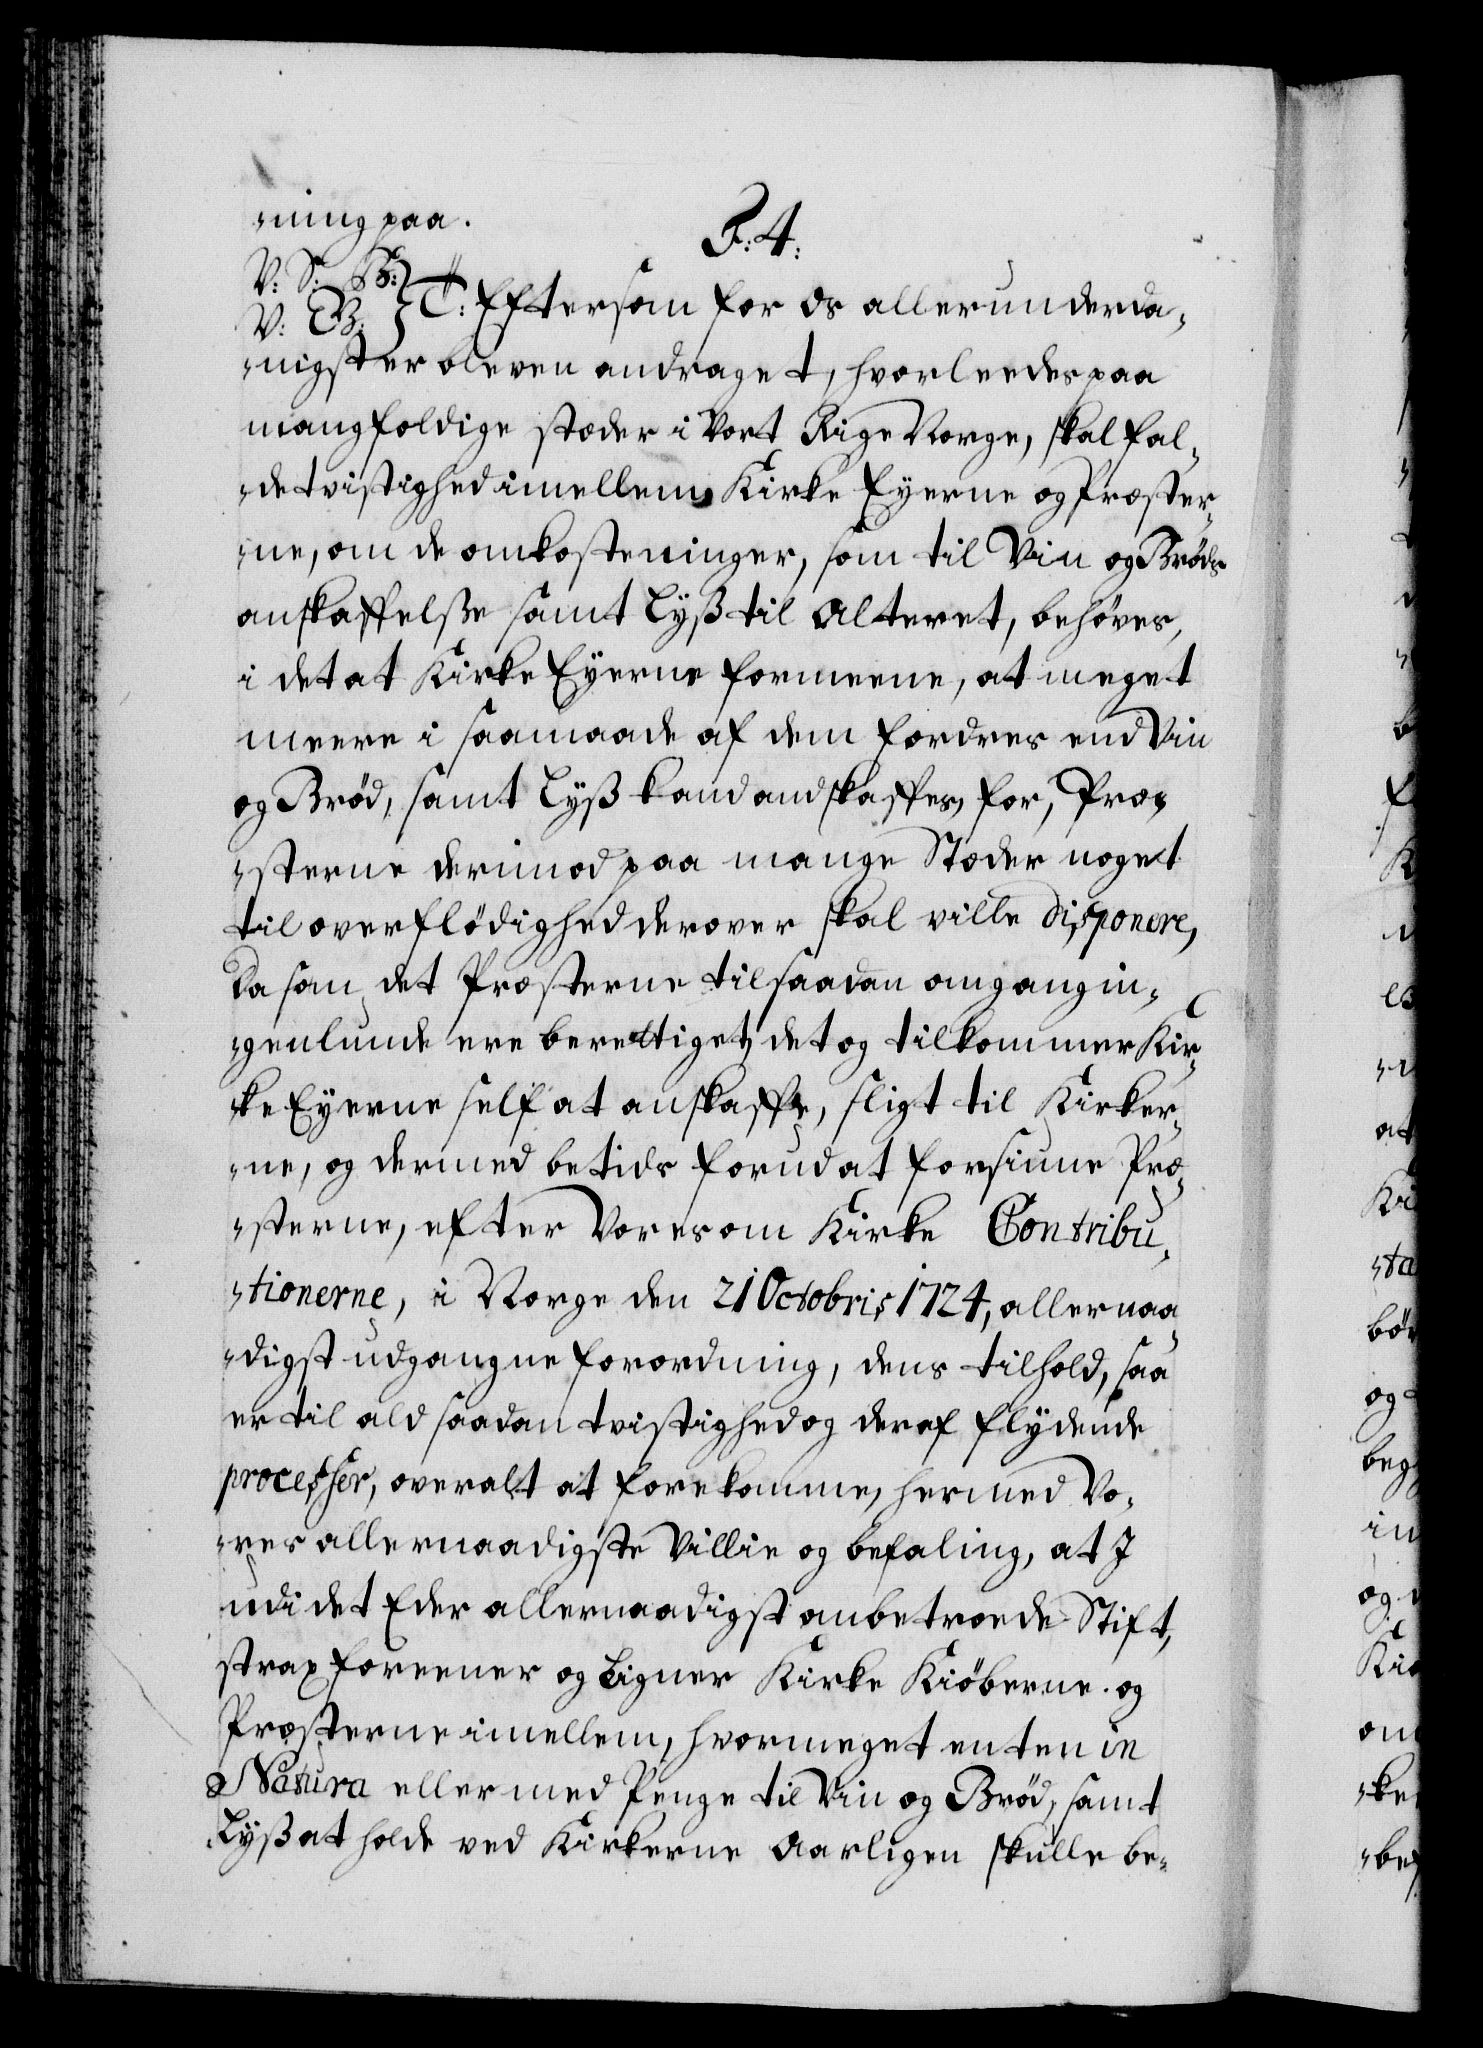 -ning paa.
F: 4:
V: S: B:
V: G: } T: Eftersom for os allerunderda-
-nigst er bleven andraget, hvorleedes paa
mangfoldige stæder i Vort Rige Norge, skal fal-
-de tvistighed imellem Kirke Eyerne og Præster-
-ne, om de omkostninger, som til Viin og Brøds
anskaffelsze samt Lysz til Alteret, behøves,
i det at Kirke Eyerne formeene, at meget
meere i saamaade af dem fordres end Vin
og Brød, samt Lysz kand andskaffes, for, Præ-
-sterne derimod paa mange Stæder noget
til overflødighed derover skal ville disponere,
Da som det Præsterne til saadan omgang in-
-genlunde ere berettiget, det og tilkommer Kir-
-ke Eyerne self at anskaffe, sligt til Kirker-
-ne, og dermed betids forud at forsiune Præ-
-sterne, efter Vores om Kirke Contribu-
-tionerne, i Norge den 21 Octobris 1724, allernaa-
-digst udgangne forordning, dens tilhold, saa
er til ald saadan tvistighed og deraf flydende
processer, overalt at forekomme, hermed Vo-
-res allernaadigste Villie og befaling, at I
udi det Eder allernaadigst anbetroede Stift,
strax foreener og Ligner Kirke Kiøberne og
Præsterne imellem, hvormeget enten in
Natura eller med Penge til Viin og Brød, samt
Lysz at holde ved Kirkerne Aarligen skulle be-